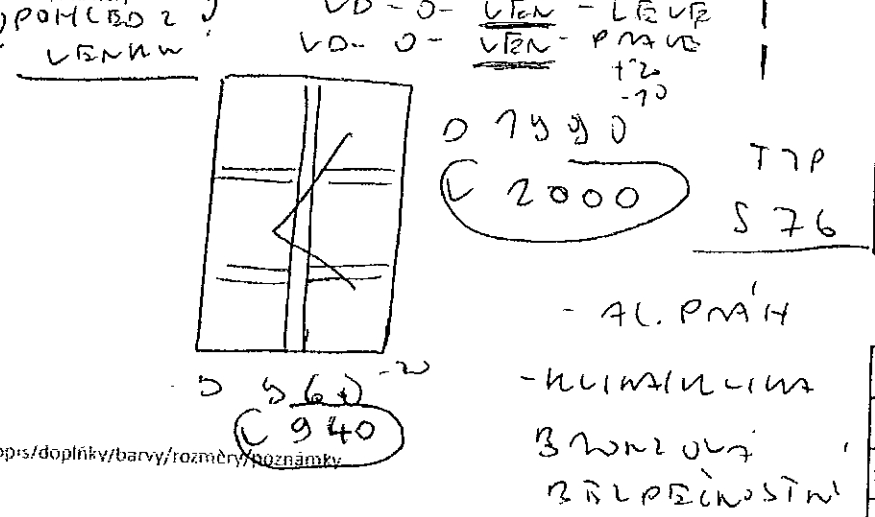 POHLED Z
VENKU
VD - O - VEN - LEVÉ
VD - O - VEN - PRAVÉ
+20
-10
D 1990
C 2000
TYP
S 76
- AL. PRÁH
- KLIKA/KLIKA
BRONZOVÁ
BEZPEČNOSTNÍ
D 960 -20
C 940
opis/doplňky/barvy/rozměry/poznámky